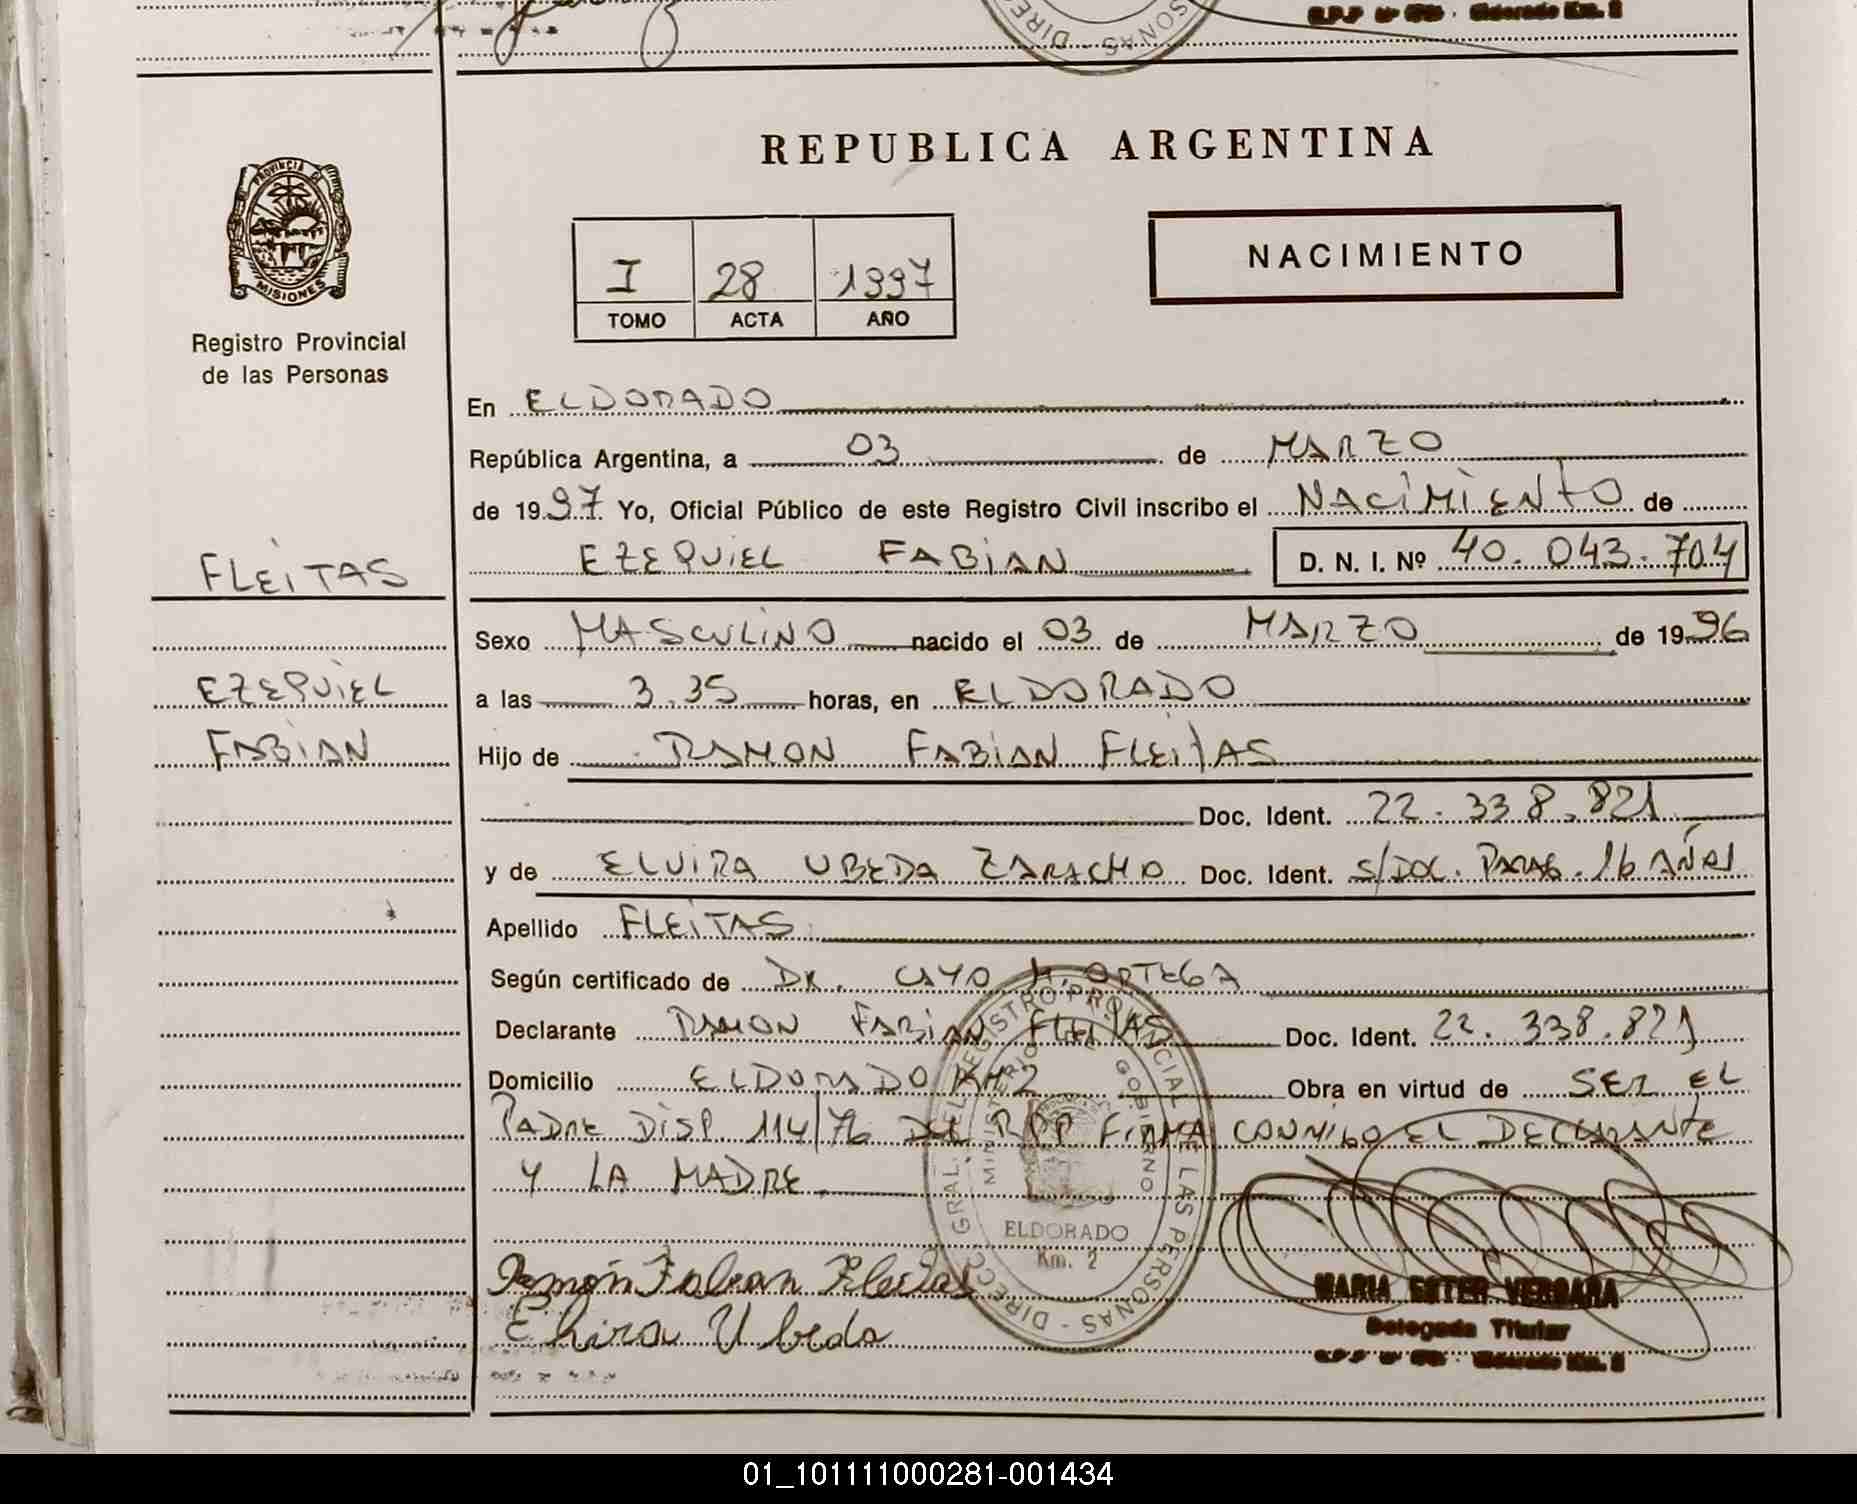 PROVINCIA DE
MISIONES
Registro Provincial
de las Personas
FLEITAS
EZEQUIEL
FABIAN
REPUBLICA ARGENTINA
I 28 1997
TOMO ACTA AÑO
NACIMIENTO
En ELDORADO
República Argentina, a 03 de MARZO
de 1997 Yo, Oficial Público de este Registro Civil inscribo el NACIMIENTO de
EZEQUIEL FABIAN D. N. I. Nº 40.043.704
Sexo MASCULINO nacido el 03 de MARZO de 1996
a las 3.35 horas, en ELDORADO
Hijo de RAMON FABIAN FLEITAS
Doc. Ident. 22.338.821
y de ELVIRA UBEDA ZARACHO Doc. Ident. S/DOC. PARAG. 16 AÑOS
Apellido FLEITAS
Según certificado de DR. CAYO M. ORTEGA
Declarante RAMON FABIAN FLEITAS Doc. Ident. 22.338.821
Domicilio ELDORADO KM 2 Obra en virtud de SER EL
PADRE DISP. 114/76 DEL RPP FIRMA CONMIGO EL DECLARANTE
Y LA MADRE.
DIRECC. GRAL. DEL REGISTRO PROVINCIAL DE LAS PERSONAS
MINISTERIO DE GOBIERNO
ELDORADO
Km. 2
Ramón Fabian Fleitas
Elvira Ubeda
MARIA ESTER VERGARA
Delegada Titular
Eldorado Km. 2
01_101111000281-001434